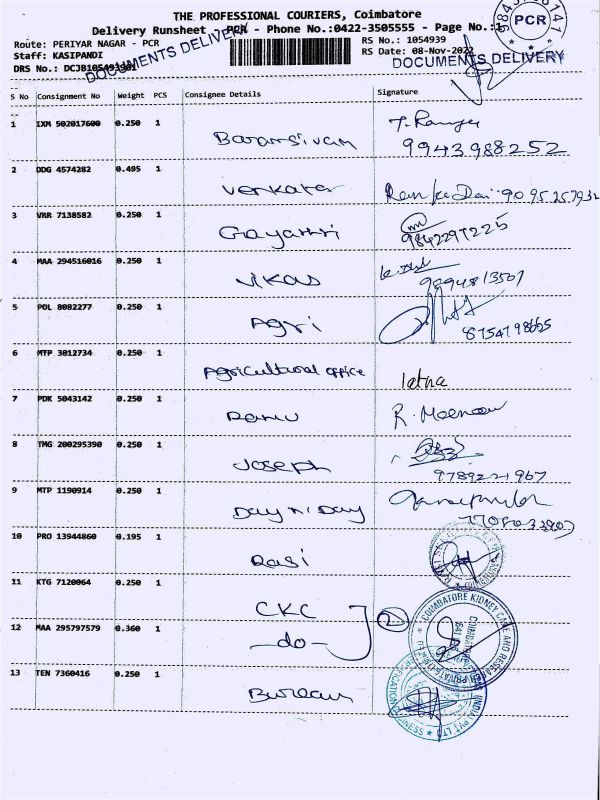 THE PROFESSIONAL COURIERS, Coimbatore
Delivery Runsheet - PCR - Phone No.:0422-3505555 - Page No.:1
Route: PERIYAR NAGAR - PCR
RS No.: 1054939
Staff: KASIPANDI
RS Date: 08-Nov-2022
DRS No.:
DOCUMENTS DELIVERY
DOCUMENTS DELIVERY
PCR
S No Consignment No Weight PCS Consignee Details Signature
1 IXM 502017600 0.250 1
9943988252
2 DDG 4574282 0.495 1 Venkates
3 VRR 7138582 0.250 1 Gayathri
9842297225
4 MAA 294516016 0.250 1 Vikas
9894813507
5 POL 8082277 0.250 1 Agri
6 MTP 3012734 0.250 1 Agricultural office latha
7 PDK 5043142 0.250 1 Ramu R. Meena
8 TMG 200295390 0.250 1 Joseph
9 MTP 1190914 0.250 1 Day N Day
10 PRO 13944860 0.195 1 Rasi
11 KTG 7120064 0.250 1 CKC
12 MAA 295797579 0.360 1 -do-
COIMBATORE KIDNEY CARE AND
13 TEN 7360416 0.250 1 Bureau